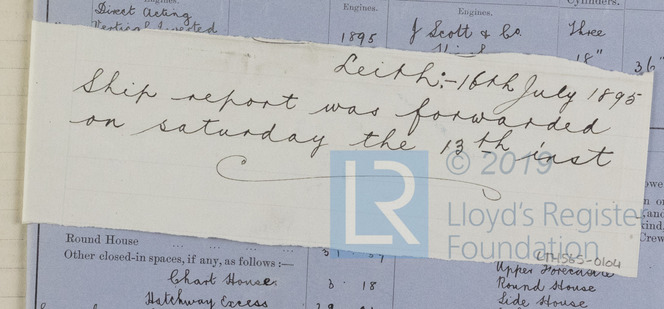 Engines.
Engines.
Engines.
Cylinders.
Direct Acting
Vertical Inverted
1895
J Scott & Co.
Three
18"
36"
Leith:- 16th July 1895
Ship report was forwarded
on saturday the 13th inst
© 2019
LR
Lloyd's Register
Foundation
CTH565-0104
Round House
Other closed-in spaces, if any, as follows :—
Upper Forecastle
Chart House
3 · 18
Round House
Hatchway Excess
Side House